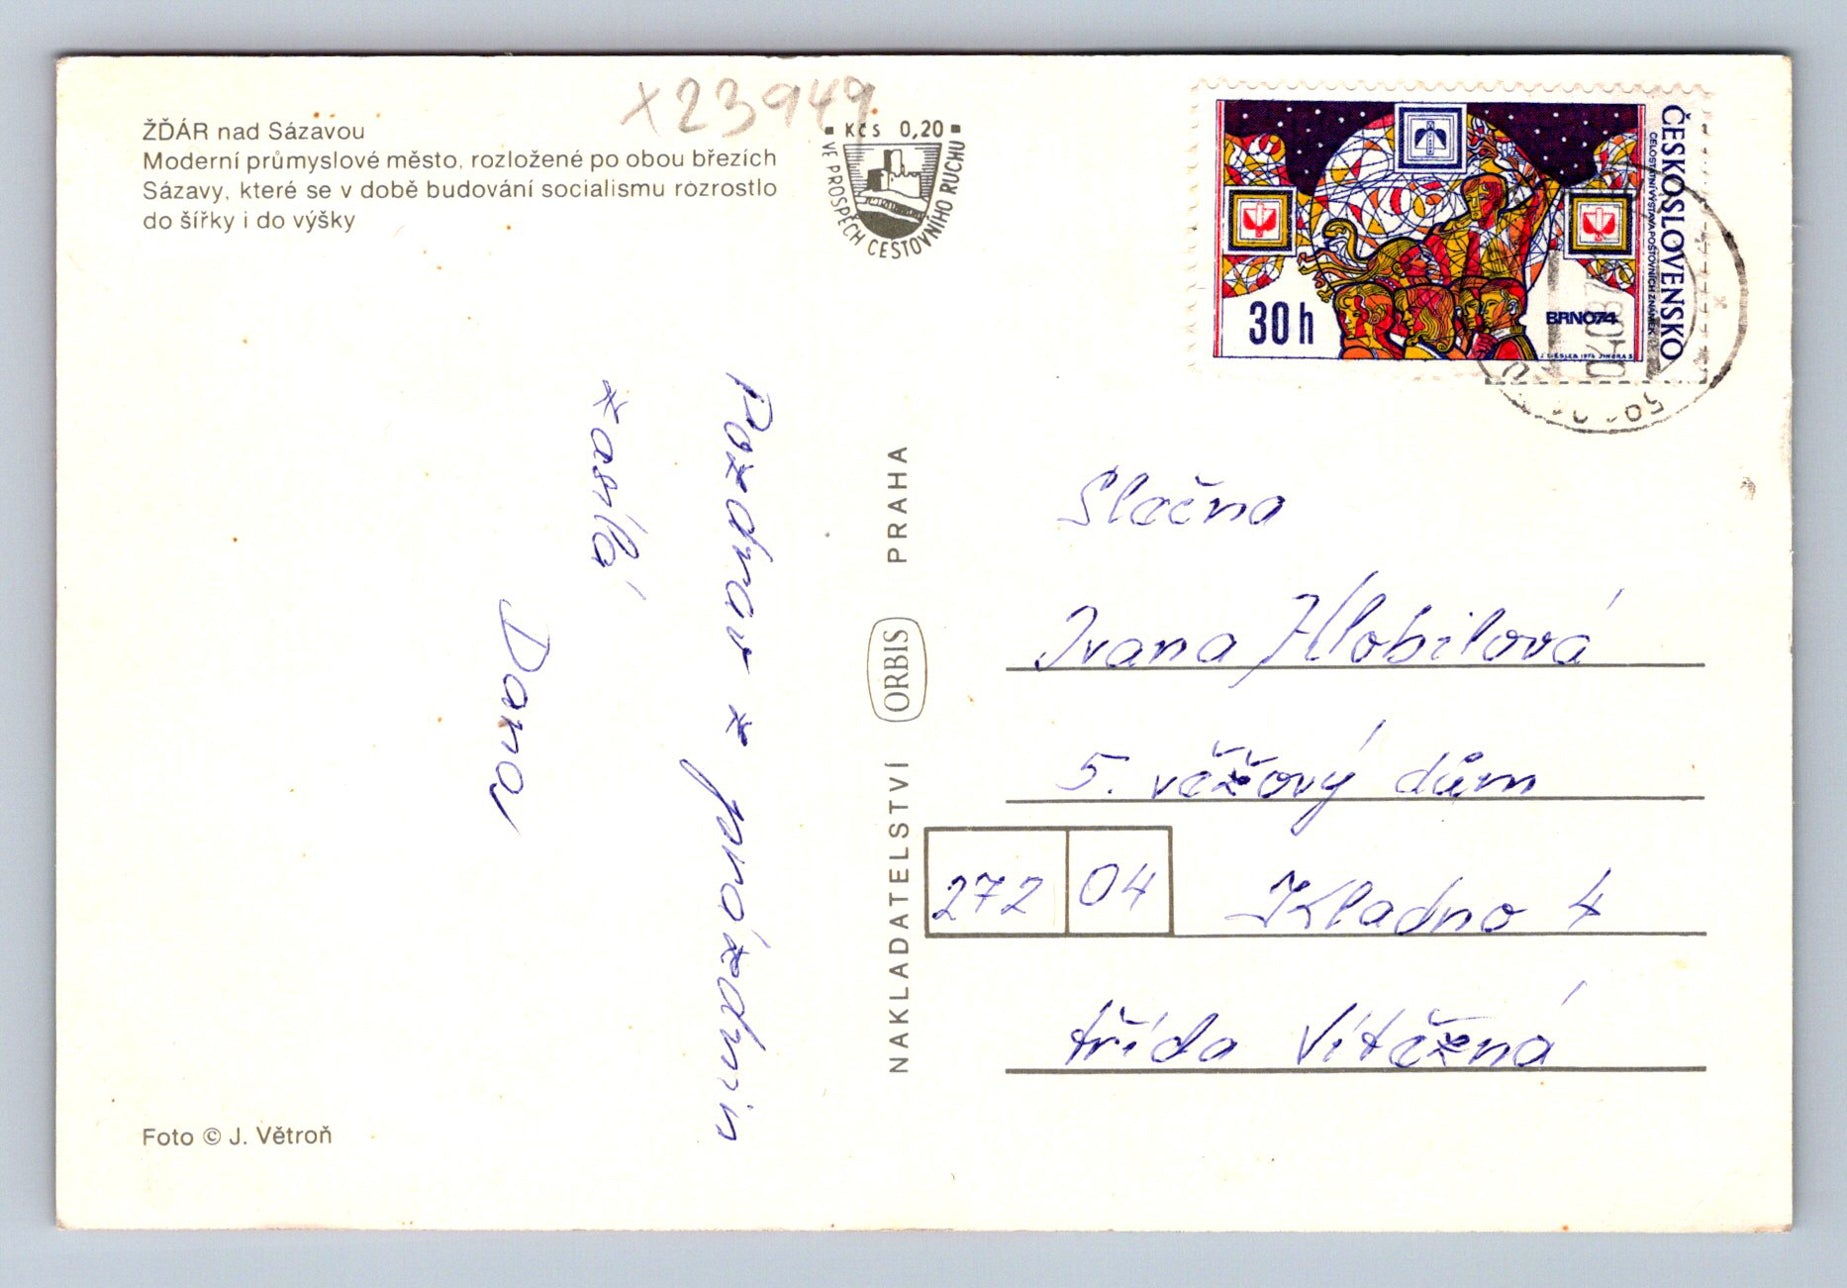 ŽĎÁR nad Sázavou
Moderní průmyslové město, rozložené po obou březích
Sázavy, které se v době budování socialismu rozrostlo
do šířky i do výšky
x23949
Kčs 0,20
VE PROSPĚCH CESTOVNÍHO RUCHU
ČESKOSLOVENSKO
CELOSTÁTNÍ VÝSTAVA POŠTOVNÍCH ZNÁMEK
30 h
BRNO74
Pozdrav z prázdnin
zasílá
Dana
NAKLADATELSTVÍ ORBIS PRAHA
Slečna
Ivana Hlobilová
5. věžový dům
272 04 Kladno 4
třída Vítězná
Foto © J. Větroň